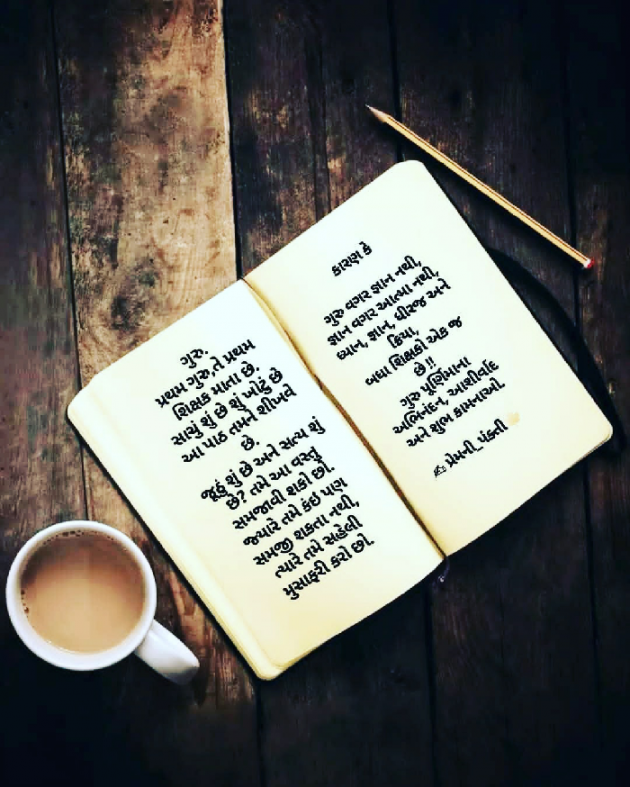 ગુરુ.
પ્રથમ ગુરુ,તે પ્રથમ
શિક્ષક માતા છે.
સાચું શું છે શું ખોટું છે
આ પાઠ તમને શીખવે
છે.
જૂઠું શું છે અને સત્ય શું
છે? તમે આ વસ્તુ
સમજાવી શકો છો.
જ્યારે તમે કંઈ પણ
સમજી શકતા નથી,
ત્યારે તમે સહેલી
મુસાફરી કરો છો.
કારણ કે
ગુરુ વગર જ્ઞાન નથી,
જ્ઞાન વગર આત્મા નથી,
ધ્યાન, જ્ઞાન, ધીરજ અને
ક્રિયા,
બધા શિક્ષકો એક જ
છે!!
ગુરુ પૂર્ણિમાના
અભિનંદન, આશીર્વાદ
અને શુભ કામનાઓ.
✍️ પ્રેમની_પંક્તી